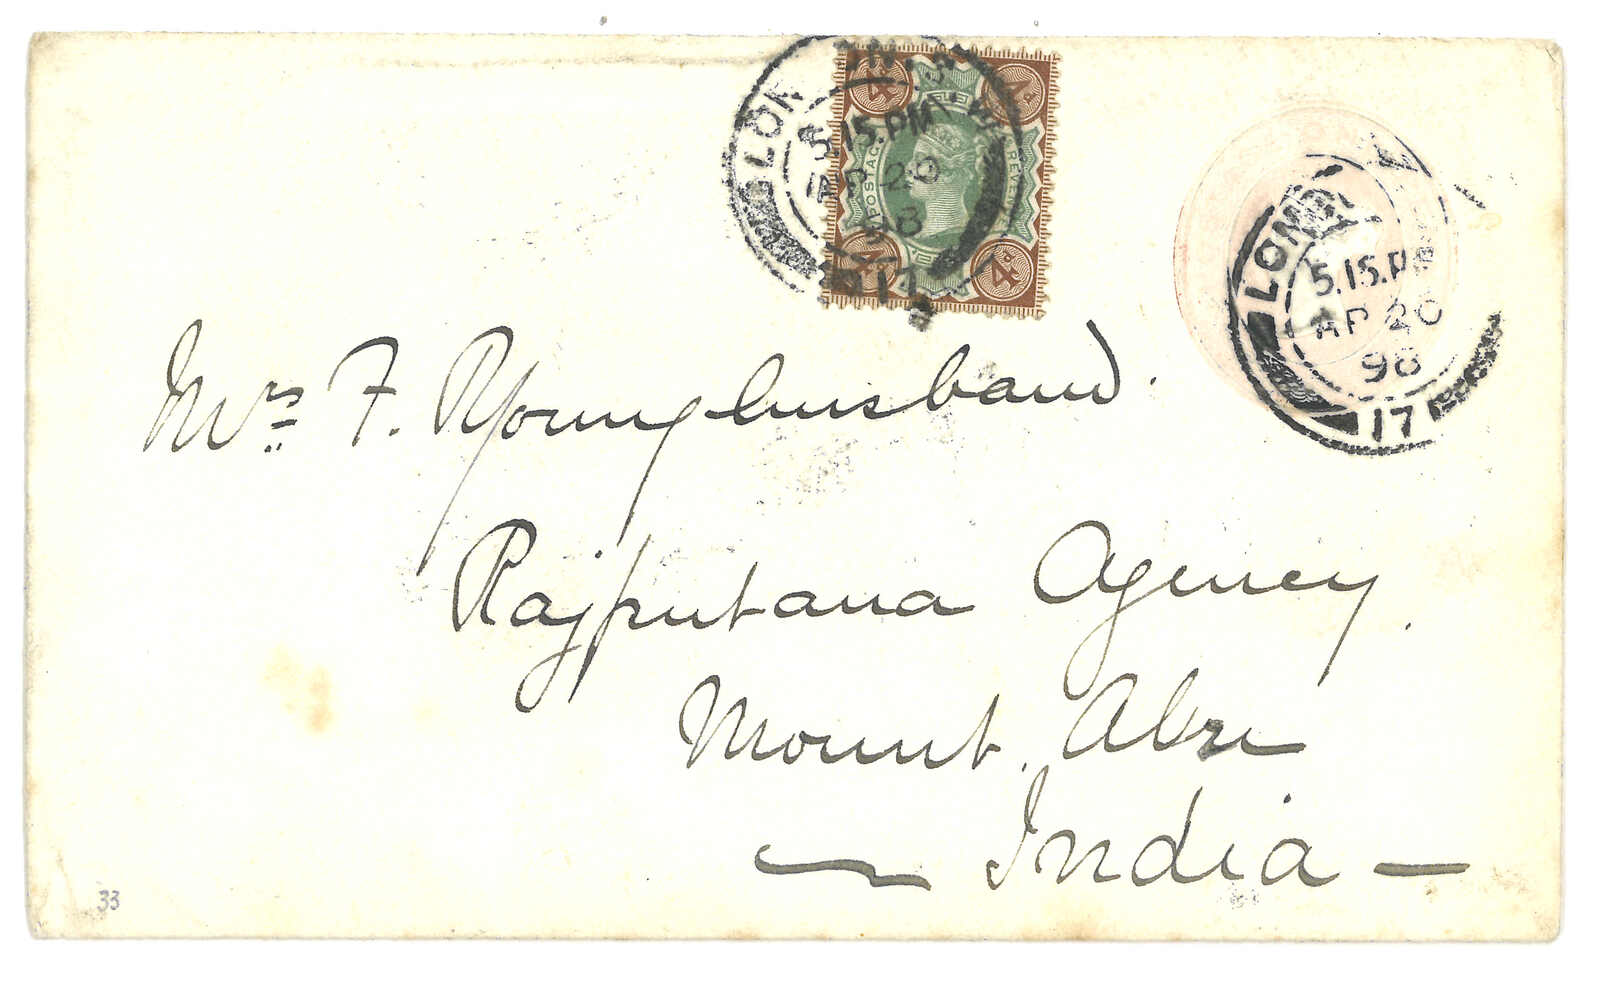 LON
5.15.PM
AP 20
98
17
4d
4d
POSTAGE
& REVENUE
4d
4d
LOND
5.15.PM
AP 20
98
17
Mrs F. Younghusband.
Rajputana Agency.
Mount. Abu
India
33